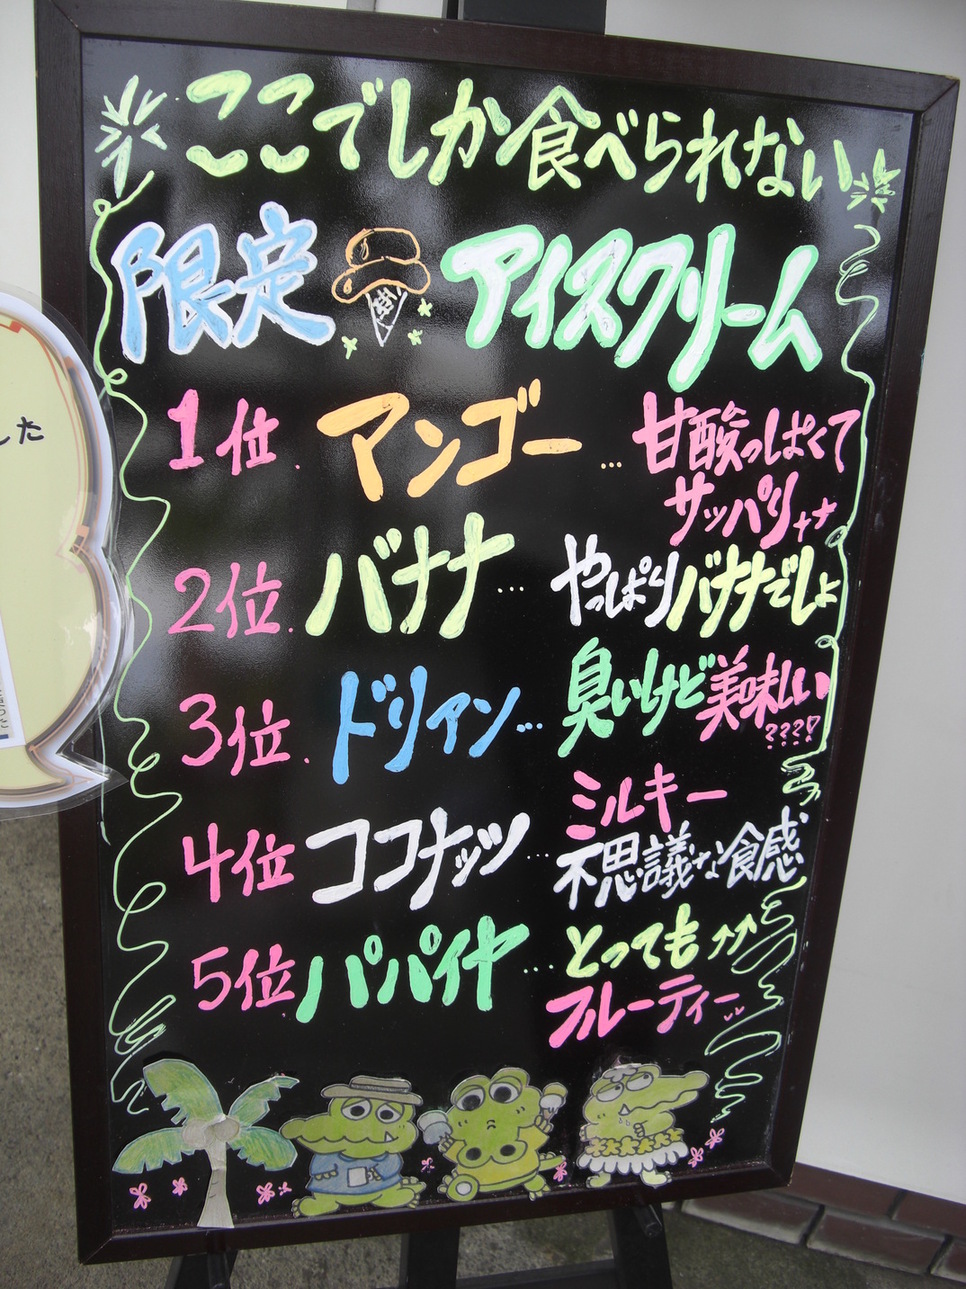 した
ここでしか食べられない
限定 アイスクリーム
1位. マンゴー … 甘酸っぱくて
サッパリ++
2位. バナナ … やっぱりバナナでしょ
3位. ドリアン … 臭いけど美味しい
????!
4位 ココナッツ … ミルキー
不思議な食感
5位 パパイヤ … とっても↑↑
フルーティー